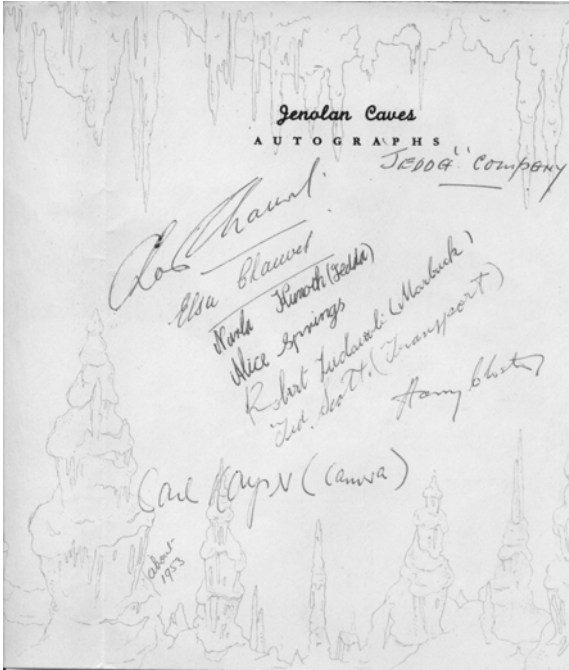 Jenolan Caves
AUTOGRAPHS
"JEDDA" COMPANY
Chas Chauvel.
Elsa Chauvel
Narla Kunoth (Jedda)
Alice Springs
Robert Tudawali (Marbuck)
Ted. Scott. (Transport)
Harry
Carl Kayser (Camera)
about
1953